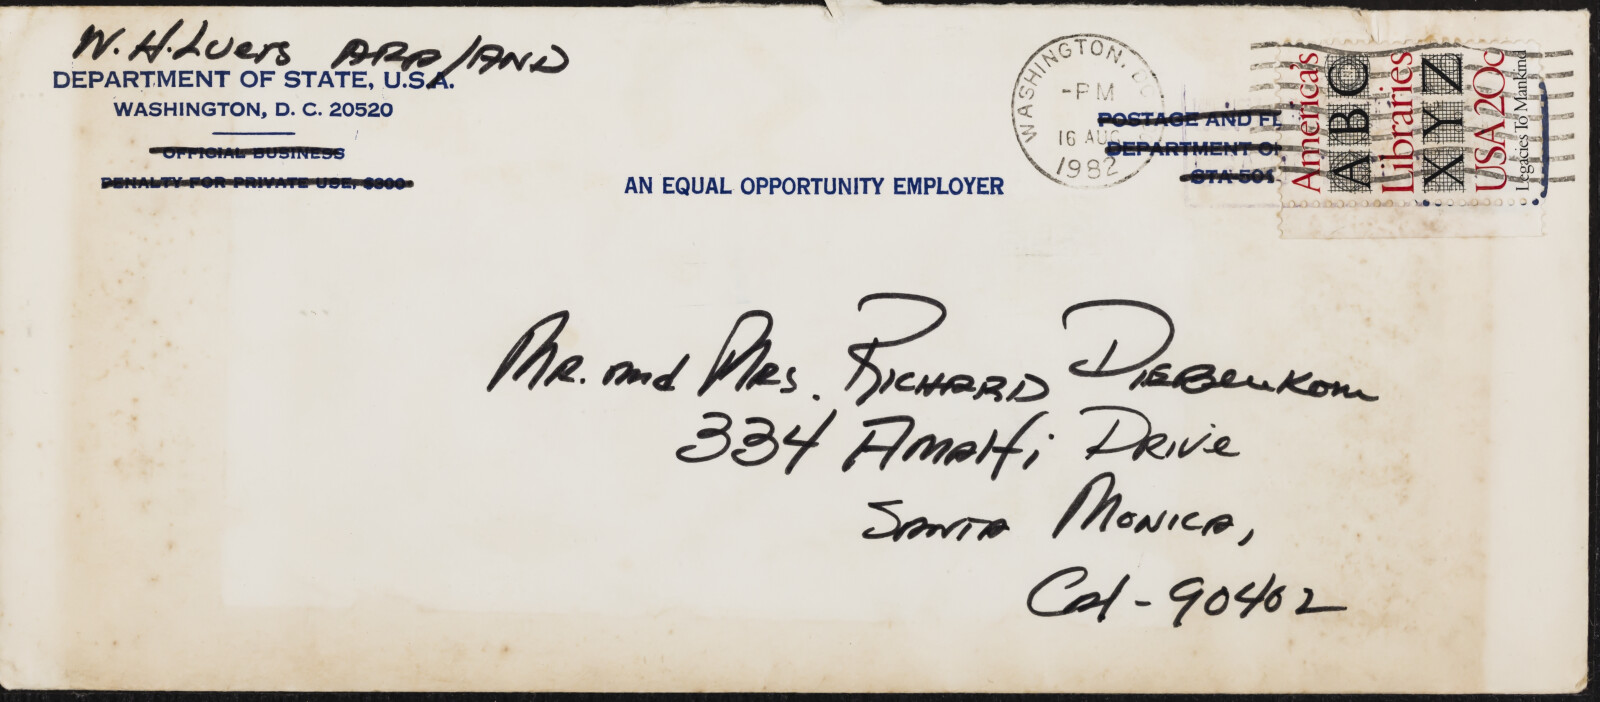 W. H. Luers ARA/AND
DEPARTMENT OF STATE, U.S.A.
WASHINGTON, D. C. 20520
OFFICIAL BUSINESS
PENALTY FOR PRIVATE USE, $300
AN EQUAL OPPORTUNITY EMPLOYER
WASHINGTON, DC
-PM
16 AUG
1982
POSTAGE AND FE
DEPARTMENT OF
STA-501
America's
ABC
Libraries
XYZ
USA 20c
Legacies To Mankind
Mr. and Mrs. Richard Diebenkorn
334 Amalfi Drive
Santa Monica,
Cal - 90402